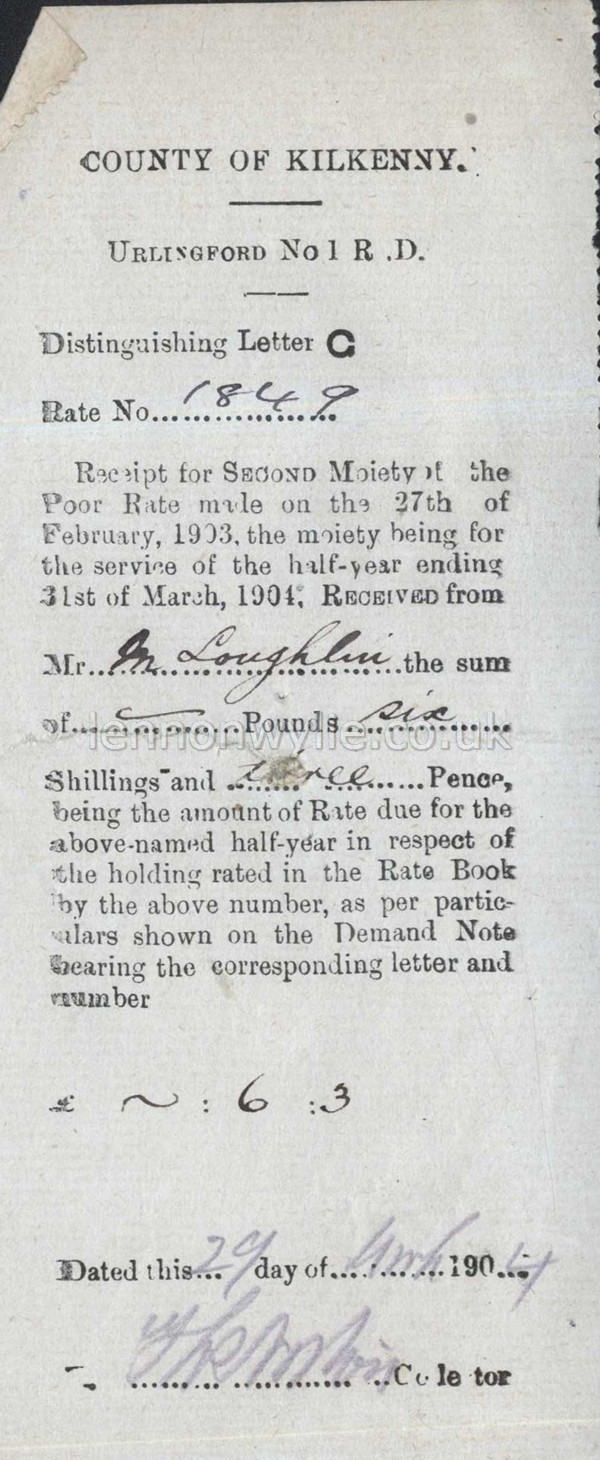 COUNTY OF KILKENNY.
URLINGFORD No 1 R .D.
Distinguishing Letter C
Rate No. 1849
Receipt for SECOND Moiety of the
Poor Rate made on the 27th of
February, 1903, the moiety being for
the service of the half-year ending
31st of March, 1904, RECEIVED from
Mr. M Loughlin the sum
of ~ Pounds six
lennonwylie.co.uk
Shillings and three Pence,
being the amount of Rate due for the
above-named half-year in respect of
the holding rated in the Rate Book
by the above number, as per partic-
ulars shown on the Demand Note
bearing the corresponding letter and
number
£ ~ : 6 : 3
Dated this 29 day of 1904
Collector